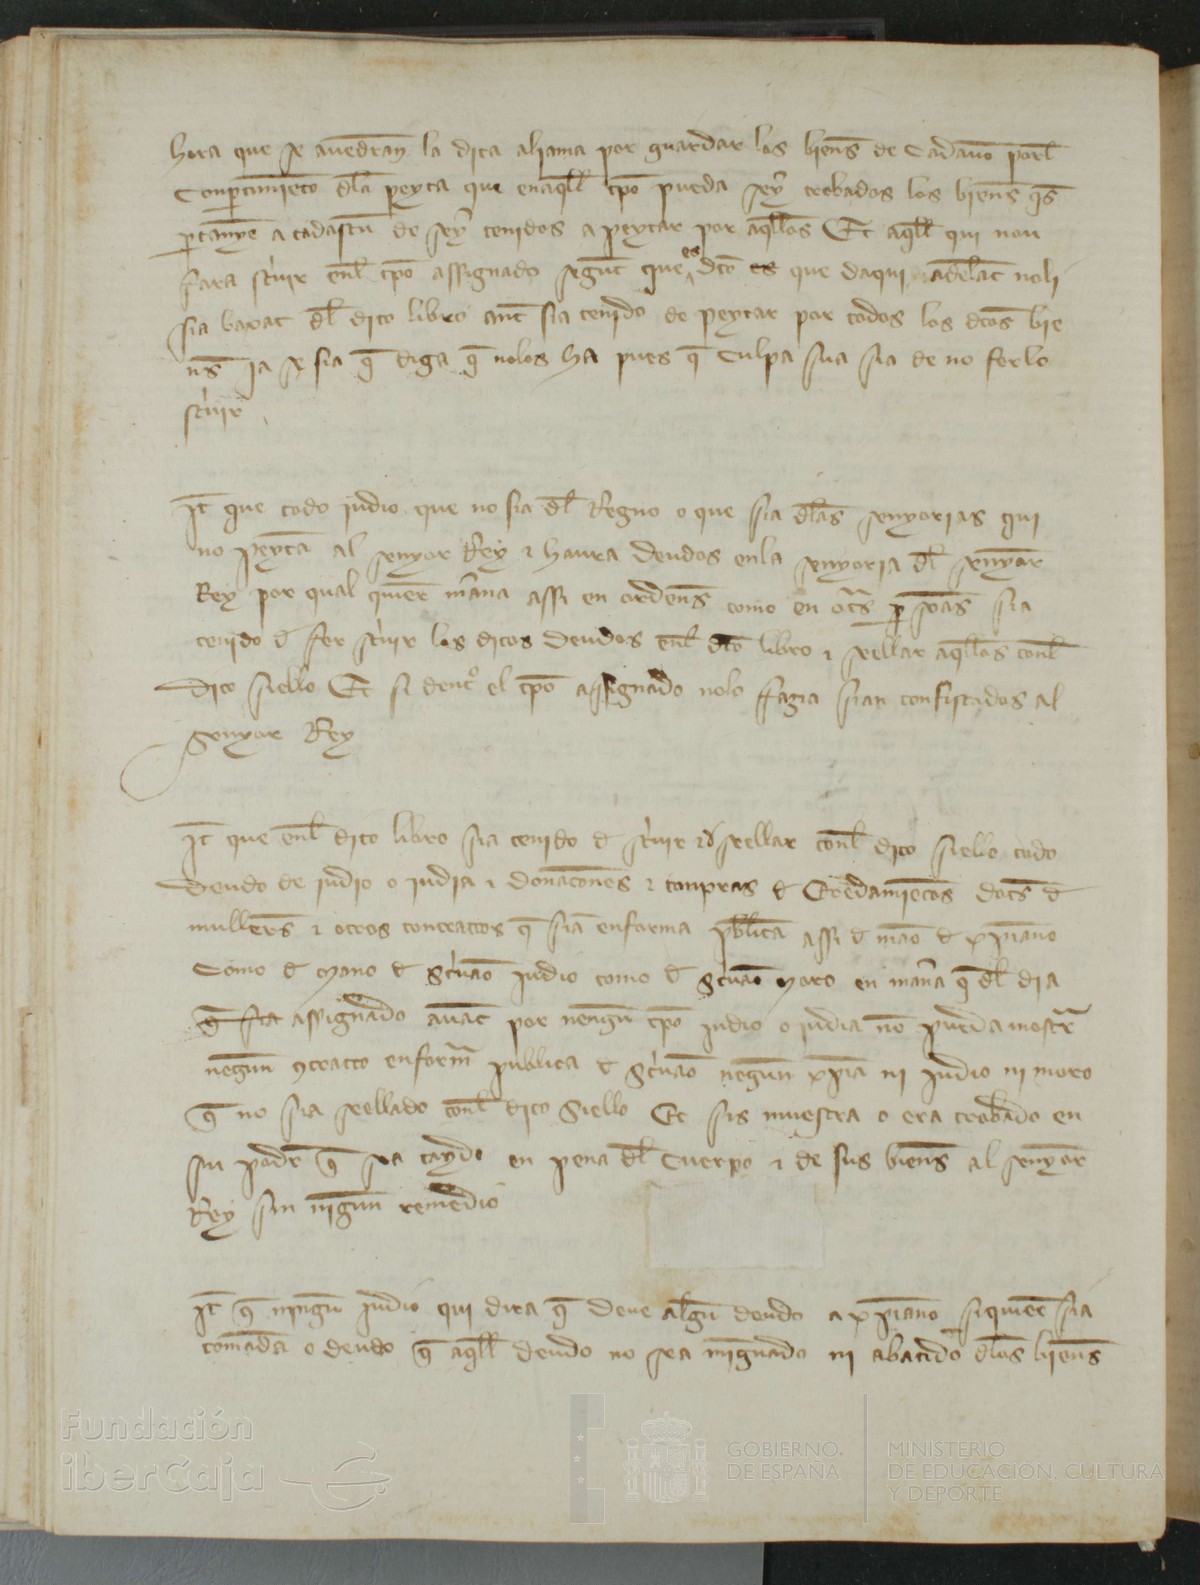 hora que se auedran la dita aliama por guardar los biens de Cadauno porel
Conpertimiento dela peyta que enaquell tpo pueda seyer trobados los biens qs
pertanye a cadascun de seyer tenidos a peytar por aquellos Et aquell qui non
fara scriuir enel tpo assignado segunt que es dito es que daqui adelant noli
sia baxat del dito libro ant sia tenido de peytar por todos los ditos bie
ns Ia se sia que diga que nolos ha pues que Culpa sua sia de no ferlo
scriuir
It que todo iudio que no sia del Regno o que sia delas senyorias qui
no peyta al senyor Rey & haura deudos enla senyoria del senyor
Rey por qual quiere manera assi en ordens como en otras sia
tenido de fer scriuir los ditos deudos enel dito libro & sellar aquellos conel
Dito siello Et si dentro el tpo assignado nolo fagia sian confiscados al
senyor Rey
It que enel dito libro sia tenido de scriuir & sellar conel dito siello todo
Deudo de iudio o iudia & donaciones & conpras de Eredamientos dots de
mullers & otros contractos que sian enforma publica assi de mano de xpiano
Como de mano de scriuano Iudio como de scriuano moro en manera que del dia
que sia assignado auant por nengun tpo iudio o iudia no pueda mostrar
negun contracto enforma publica de scriuano negun xpiano ni Iudio ni moro
que no sia sellado conel dito siello Et sis muestra o era trobado en
su poder que sea caydo en pena del Cuerpo & de sus biens al senyor
Rey sin nigun remedio
It que ningun Iudio qui dira que deue algun deudo a xpiano siquiere sia
comanda o deudo que aquell deudo no sea minguado ni abatido delos biens
Fundación
iberCaja
GOBIERNO
DE ESPAÑA
MINISTERIO
DE EDUCACIÓN, CULTURA
Y DEPORTE